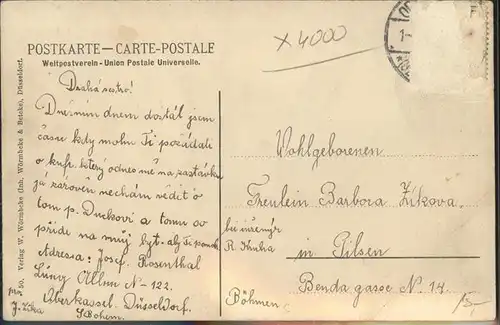 x 4000
POSTKARTE — CARTE-POSTALE
Weltpostverein - Union Postale Universelle.
Drahá sestro!
Dnešním dnem dostal jsem
časné kdy mohu Ti požádati
o kufr. který odnes mě na zastávku
já zároven nechám vědít o
tom p. Duchovi a tomu co
přide na můj byt. aby Ti
Adressa: Josef. Rosenthal
Allee N - 122.
Oberkassel. Düsseldorf.
J. Zika
Wohlgeborenen
Freulein Barbora Zíkova
R. Kuha
in Pilsen
Benda gasse N. 14.
Böhmen
15,-
50, Verlag W. Würmbcke (Inh. Würmbcke & Betcke), Düsseldorf.